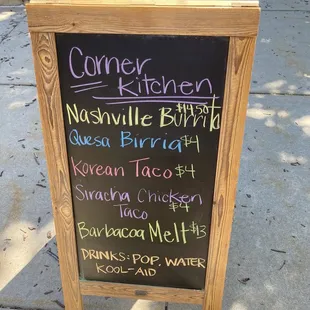 Corner
Kitchen
Nashville Burrito $14.50
Quesa Birria $4
Korean Taco $4
Siracha Chicken
Taco $4
Barbacoa Melt $13
DRINKS: POP, WATER
KOOL-AID